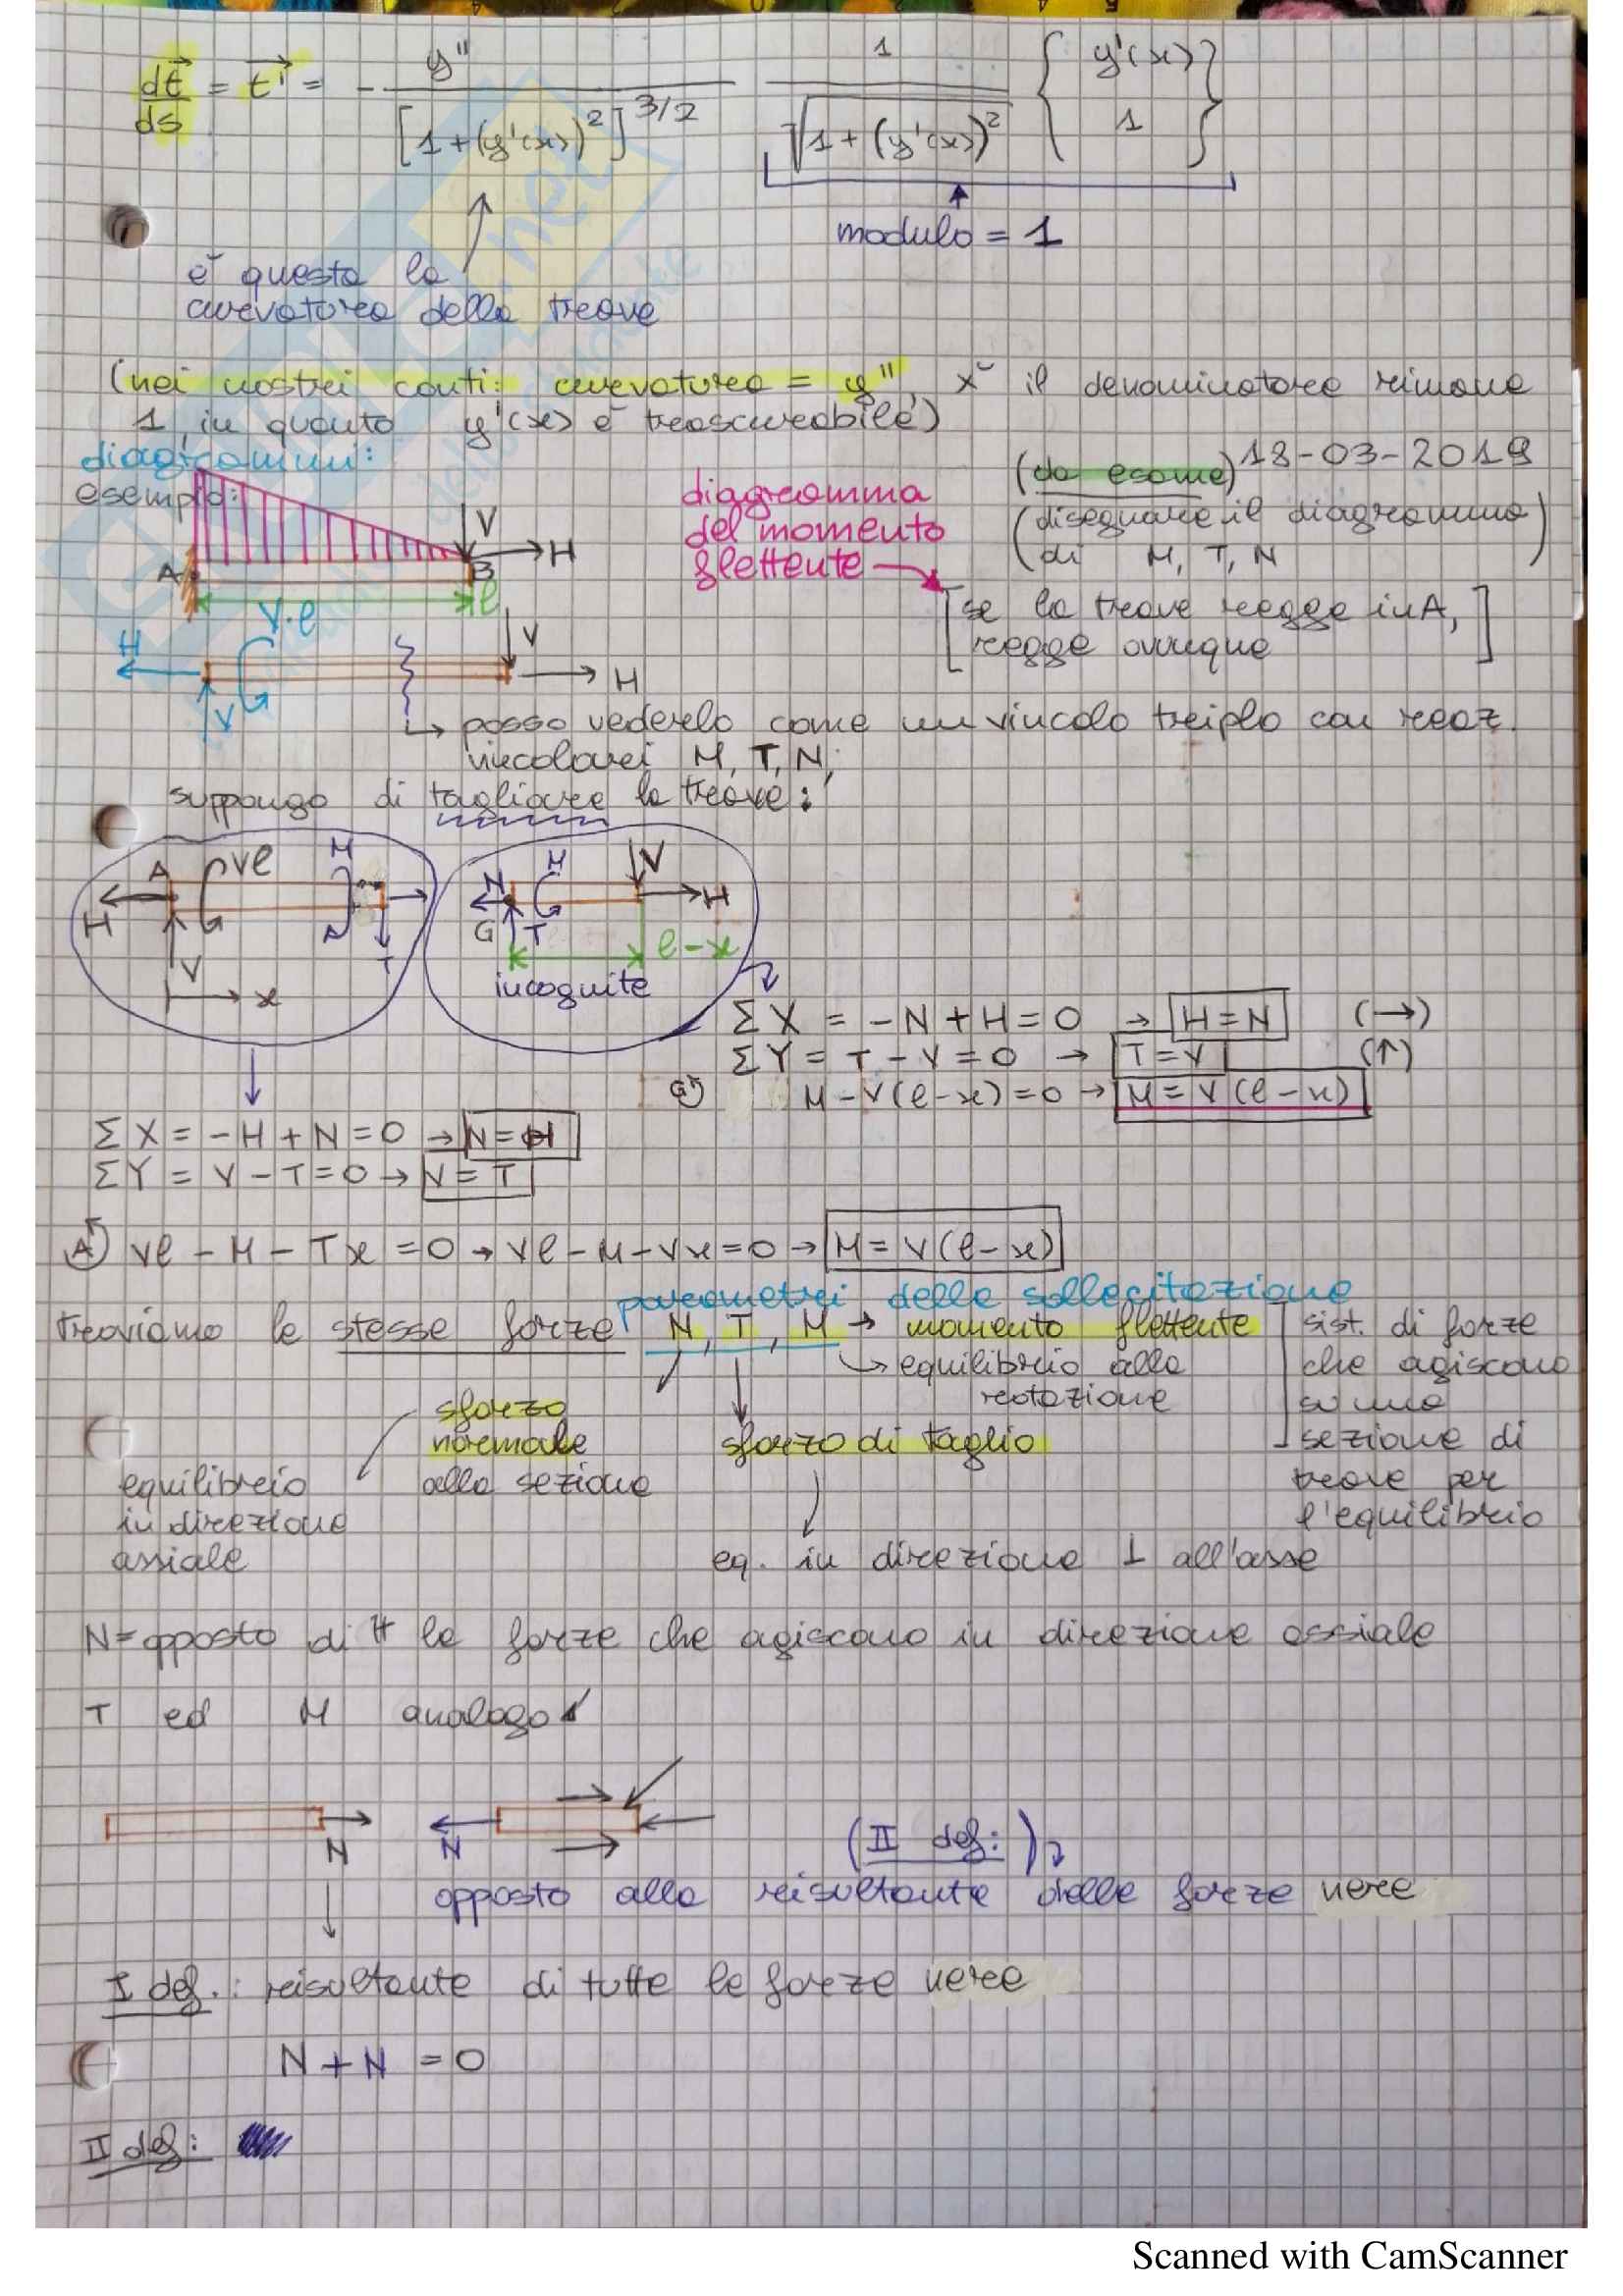 dt/ds = t' = - y'' / [1+(y'(x))²]^3/2 1 / √1+(y'(x))² { y'(x) 1 }
modulo = 1
è questa la
curvatura della trave
(nei nostri conti: curvatura = y'', x˘ il denominatore rimane
1, in quanto y'(x) è trascurabile)
diagrammi:
esempio:
A
B
V
H
l
diagramma
del momento
flettente
(da esame) 18-03-2019
(disegnare il diagramma
di M, T, N)
[se la trave regge in A,
regge ovunque]
H
V·l
V
V
H
posso vederlo come un vincolo triplo con reaz.
vincolari M, T, N;
suppongo di tagliare la trave:
A
Vl
M
H
V
T
x
N
M
V
H
G
T
l-x
incognite
ΣX = -N + H = 0 → H = N (→)
ΣY = T - V = 0 → T = V (↑)
G) M - V(l-x) = 0 → M = V(l-x)
ΣX = -H + N = 0 → N = H
ΣY = V - T = 0 → V = T
A) Vl - M - Tx = 0 → Vl - M - Vx = 0 → M = V(l-x)
parametri della sollecitazione
troviamo le stesse forze N, T, M → momento flettente
equilibrio alla
rotazione
sist. di forze
che agiscono
su una
sezione di
trave per
l'equilibrio
sforzo
normale
alla sezione
sforzo di taglio
equilibrio
in direzione
assiale
eq. in direzione ⊥ all'asse
N = opposto di tt le forze che agiscono in direzione assiale
T ed M analogo
N
N
(II def:)
opposto alla risultante delle forze nere
I def.: risultante di tutte le forze nere
N + N = 0
II def:
Scanned with CamScanner